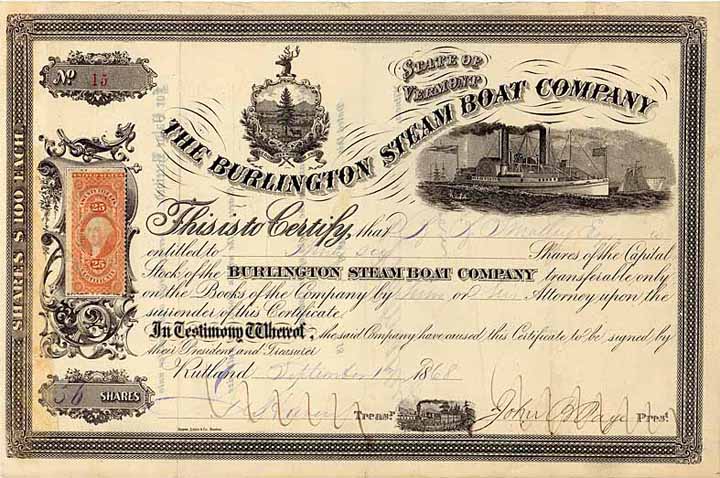 No 15
STATE OF
VERMONT
THE BURLINGTON STEAM BOAT COMPANY
SHARES $100 EACH
25
25
CERTIFICATE
This is to Certify, that
entitled to Shares of the Capital
Stock of the BURLINGTON STEAM BOAT COMPANY transferable only
on the Books of the Company by or Attorney upon the
surrender of this Certificate.
In Testimony Whereof, the said Company have caused this Certificate to be signed by
their President and Treasurer
Rutland September 1868
36 SHARES
Treasr.
John B Page Prest.